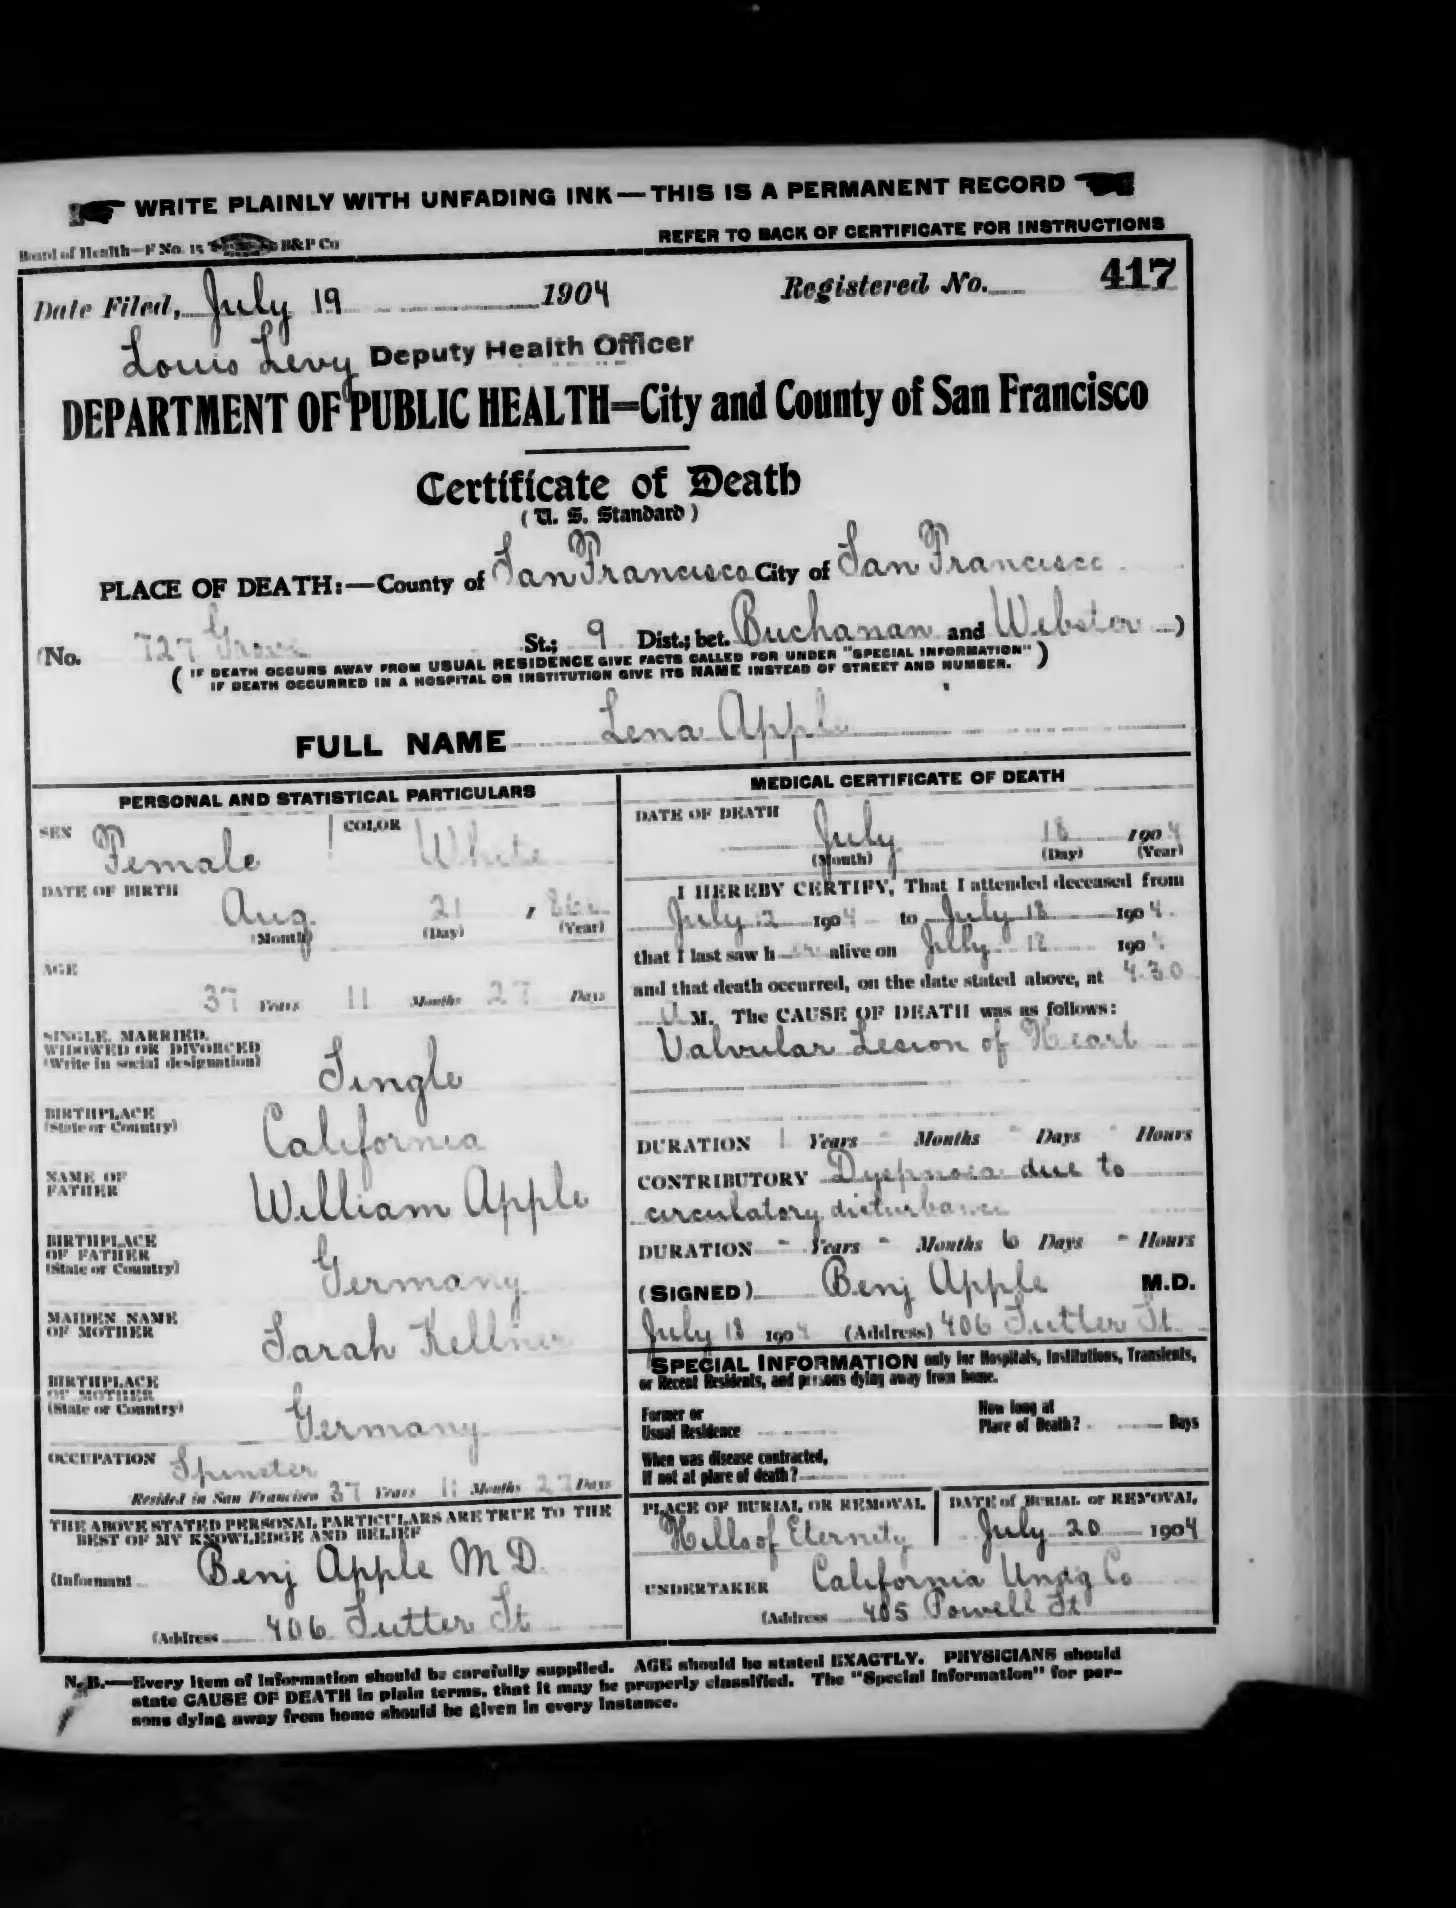 WRITE PLAINLY WITH UNFADING INK — THIS IS A PERMANENT RECORD
Board of Health—F No. 15 B&P Co
REFER TO BACK OF CERTIFICATE FOR INSTRUCTIONS
Date Filed, July 19 1904 Registered No. 417
Louis Levy Deputy Health Officer
DEPARTMENT OF PUBLIC HEALTH=City and County of San Francisco
Certificate of Death
(U. S. Standard)
PLACE OF DEATH:—County of San Francisco City of San Francisco
(No. 727 Grove St.; 9 Dist.; bet. Buchanan and Webster )
( IF DEATH OCCURS AWAY FROM USUAL RESIDENCE GIVE FACTS CALLED FOR UNDER "SPECIAL INFORMATION" )
IF DEATH OCCURRED IN A HOSPITAL OR INSTITUTION GIVE ITS NAME INSTEAD OF STREET AND NUMBER.
FULL NAME Lena Apple
PERSONAL AND STATISTICAL PARTICULARS
SEX Female COLOR White
DATE OF BIRTH
Aug. 21 ,
(Month) (Day) (Year)
AGE
37 Years 11 Months 27 Days
SINGLE, MARRIED,
WIDOWED OR DIVORCED
(Write in social designation)
Single
BIRTHPLACE
(State or Country)
California
NAME OF
FATHER
William Apple
BIRTHPLACE
OF FATHER
(State or Country)
Germany
MAIDEN NAME
OF MOTHER
Sarah Kellner
BIRTHPLACE
OF MOTHER
(State or Country)
Germany
OCCUPATION Spinster
Resided in San Francisco 37 Years 11 Months 27 Days
THE ABOVE STATED PERSONAL PARTICULARS ARE TRUE TO THE
BEST OF MY KNOWLEDGE AND BELIEF
(Informant Benj Apple M D.
(Address 406 Sutter St
MEDICAL CERTIFICATE OF DEATH
DATE OF DEATH
July 18 1904
(Month) (Day) (Year)
I HEREBY CERTIFY, That I attended deceased from
July 12 1904 to July 18 1904
that I last saw her alive on July 18 1904
and that death occurred, on the date stated above, at 4.30
A M. The CAUSE OF DEATH was as follows:
Valvular Lesion of Heart
DURATION 1 Years - Months - Days - Hours
CONTRIBUTORY Dyspnoea due to
circulatory disturbance
DURATION - Years - Months 6 Days - Hours
(SIGNED) Benj Apple M.D.
July 18 1904 (Address) 406 Sutter St.
SPECIAL INFORMATION only for Hospitals, Institutions, Transients,
or Recent Residents, and persons dying away from home.
Former or
Usual Residence
How long at
Place of Death? Days
When was disease contracted,
if not at place of death?
PLACE OF BURIAL OR REMOVAL
Hills of Eternity
DATE of BURIAL or REMOVAL
July 20 1904
UNDERTAKER California Undg Co
(Address 405 Powell St
N. B.—Every item of information should be carefully supplied. AGE should be stated EXACTLY. PHYSICIANS should
state CAUSE OF DEATH in plain terms, that it may be properly classified. The "Special Information" for per-
sons dying away from home should be given in every instance.